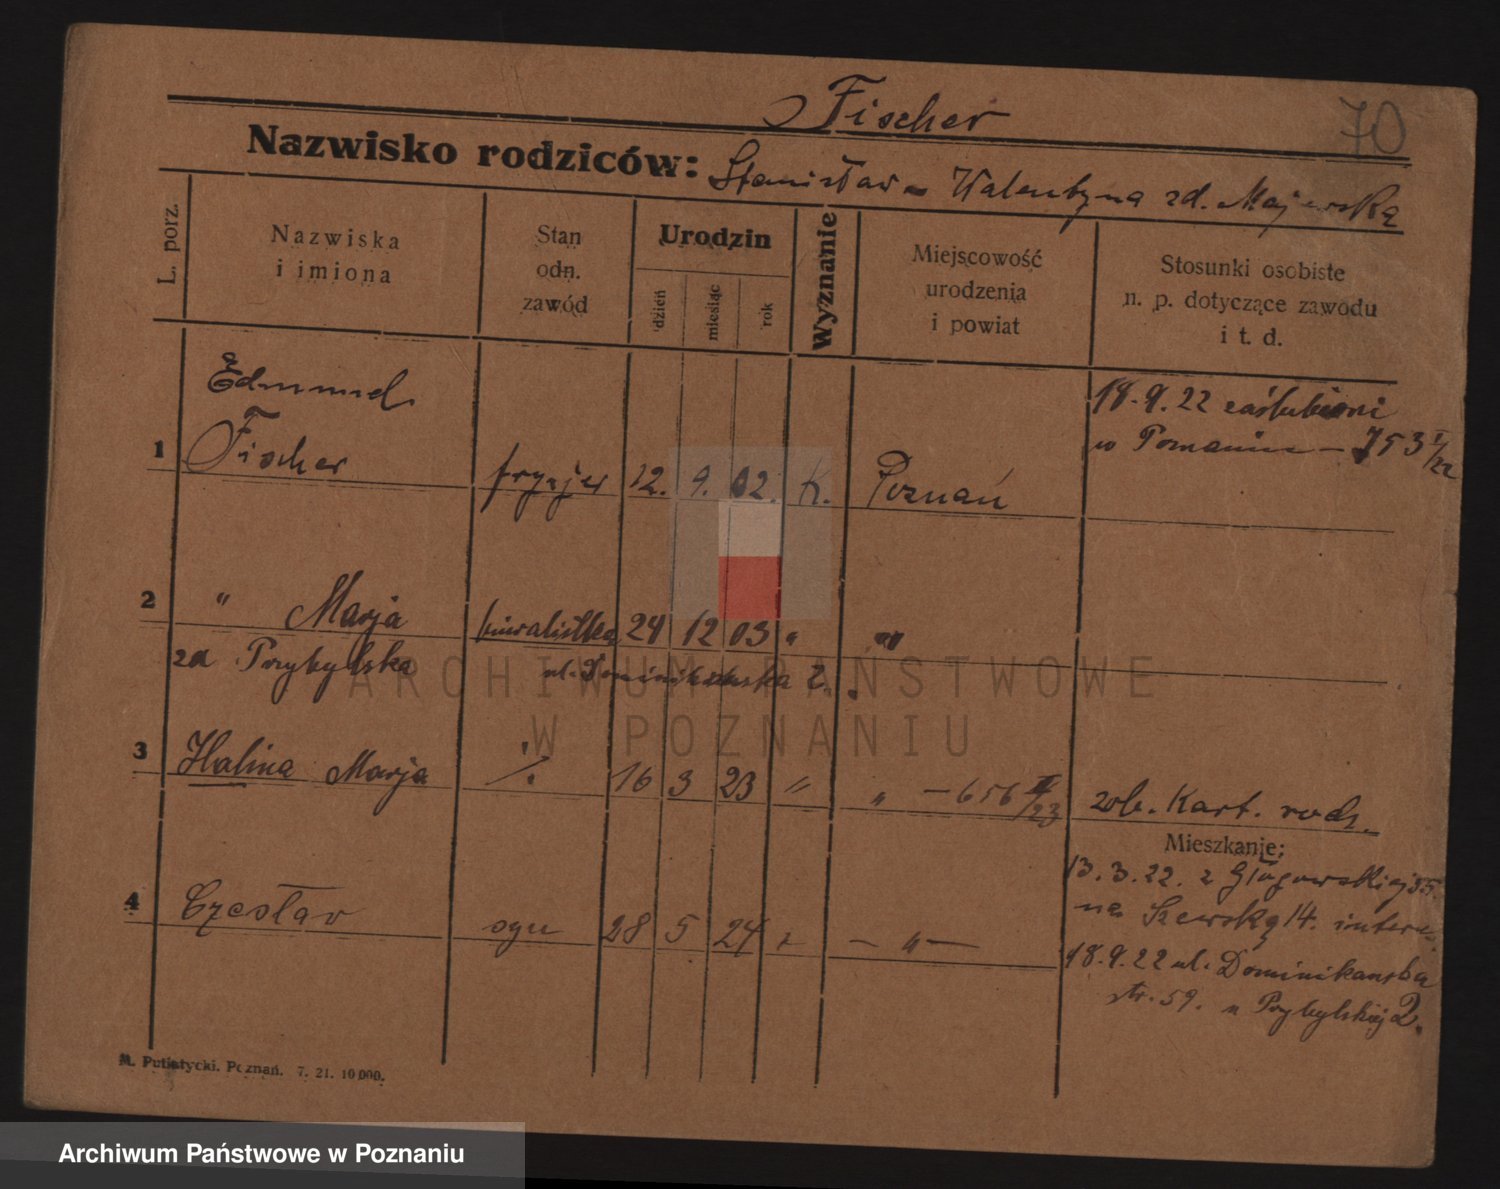 Fischer
70
Nazwisko rodziców: Stanisław - Walentyna zd. Majewska
L. porz.
Nazwiska
i imiona
Stan
odn.
zawód
Urodzin
dzień
miesiąc
rok
Wyznanie
Miejscowość
urodzenia
i powiat
Stosunki osobiste
n. p. dotyczące zawodu
i t. d.
Edmund
1 Fischer fryzjer 12. 9. 02. K. Poznań
18.9.22 zaślubieni
w Poznaniu - 753 I/22
2 " Marja 24 12 03 " "
zd Przybylska ul. Dominikańska 2.
3 Halina Marja ./. 16 3 23 " " - 656 II/23 zob. Kart. rodz.
Mieszkanie:
4 Czesław syn 28 5 24 - " -
13.3.22. z Głogowskiej 55
na Szewską 14.
18.9.22 ul. Dominikańska
str. 59. u Przybylskiej 2.
M. Putiatycki. Poznań. 7. 21. 10 000.
ARCHIWUM PAŃSTWOWE
W POZNANIU
Archiwum Państwowe w Poznaniu